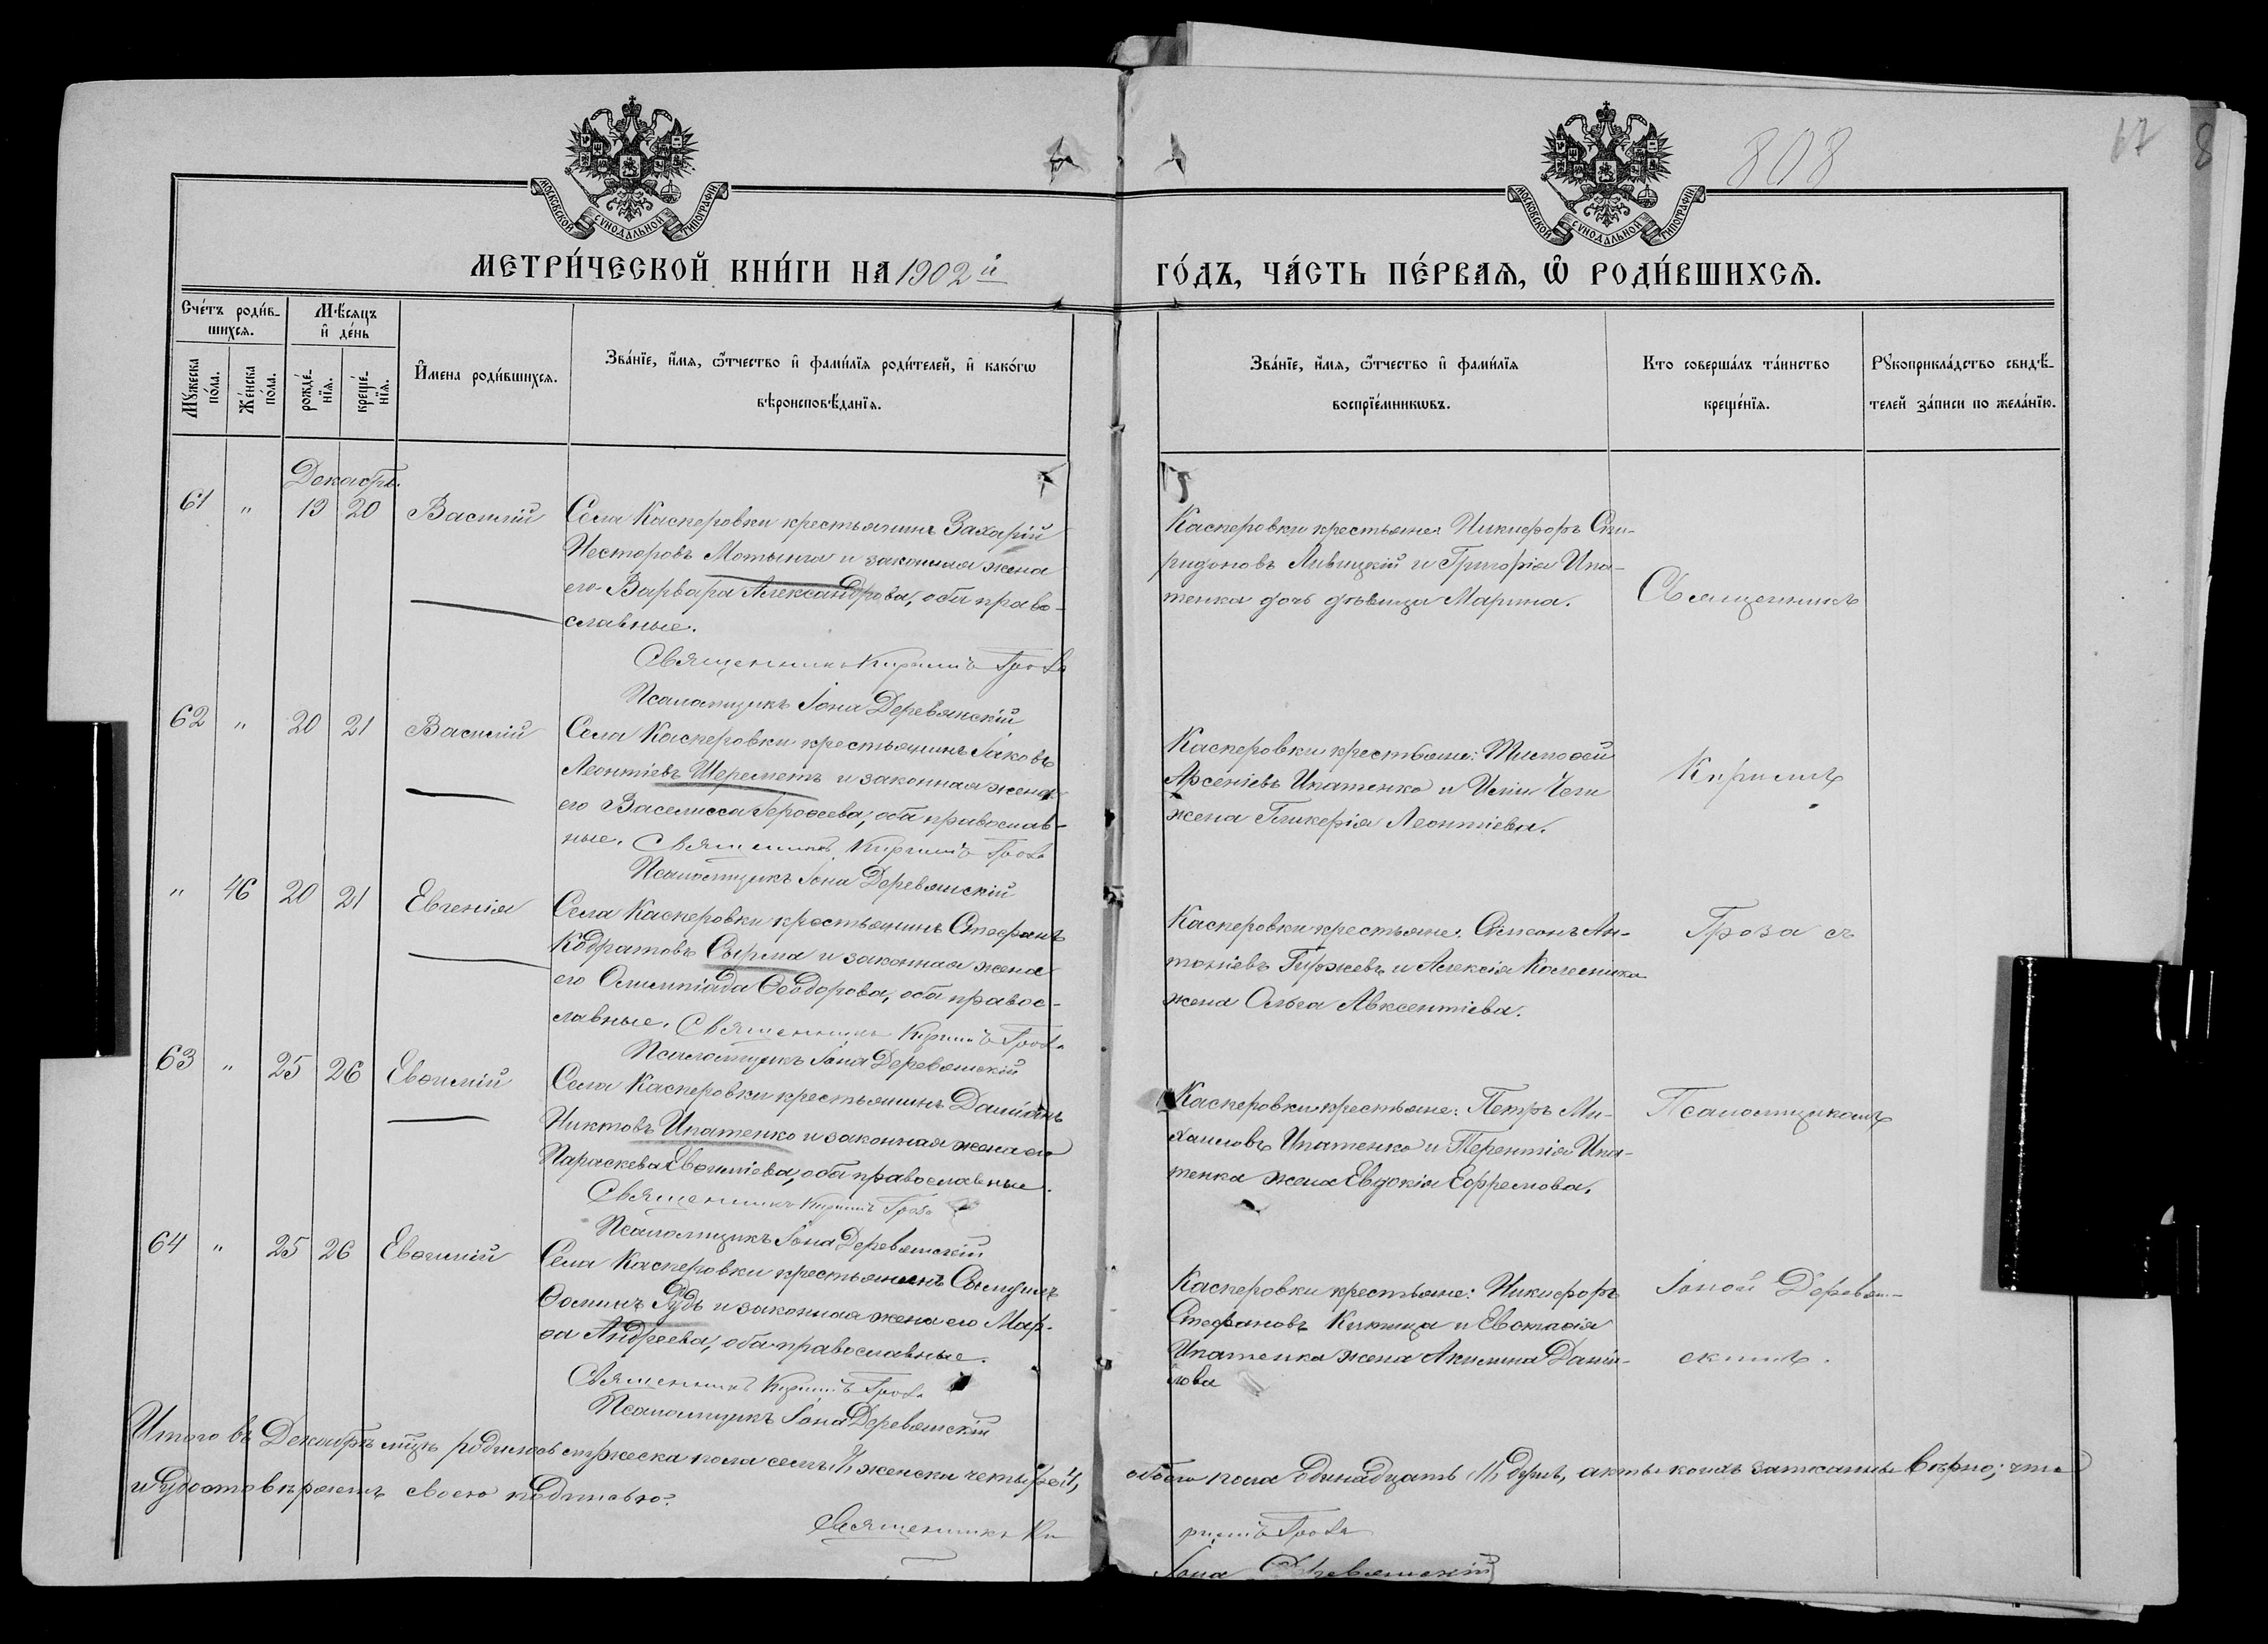 808
67
МОСКОВСКОЙ СѴНОДАЛЬНОЙ ТИПОГРАФІИ
МОСКОВСКОЙ СѴНОДАЛЬНОЙ ТИПОГРАФІИ
МЕТРИ́ЧЕСКОЙ КНИ́ГИ НА 1902й ГО́ДЪ, ЧА́СТЬ ПЕ́РВАЯ, Ѡ РОДИ́ВШИХСЯ.
Сче́тъ роди́в-
шихся.
Мꙋжеска
по́ла.
Же́нска
по́ла.
Мѣ́сяцъ
и де́нь
рожде́-
нія.
креще́-
нія.
И́мена роди́вшихся.
Зва́нїе, и́мя, ѻ́тчество и фами́лїя роди́телей, и како́гѡ
вѣроисповѣ́данїя.
Зва́нїе, и́мя, ѻ́тчество и фами́лїя
воспрїе́мникѡвъ.
Кто соверша́лъ та́инство
креще́нїя.
Рꙋкоприкла́дство свидѣ́-
телей за́писи по жела́нїю.
Декабрь.
61 " 19 20 Василій
Села Касперовки крестьянинъ Захарій
Несторовъ Мотынга и законная жена
его Варвара Александрова, оба право-
славные.
Священникъ Кириллъ Гроза
Псаломщикъ Іона Деревянскій
Касперовки крестьяне: Никифоръ Спи-
ридоновъ Ливицкій и Григорія Ипа-
тенка дочь дѣвица Марина.
Священникъ
62 " 20 21 Василій
Села Касперовки крестьянинъ Іаковъ
Леонтіевъ Шереметъ и законная жена
его Васелисса Героѳеева, оба православ-
ные. Священникъ Кириллъ Гроза
Псаломщикъ Іона Деревянскій
Касперовки крестьяне: Тимоѳей
Арсеніевъ Ипатенко и Иліи
жена Гликерія Леонтіева.
Кириллъ
" 46 20 21 Евгенія
Села Касперовки крестьянинъ Стефанъ
Кодратовъ Сырма и законная жена
его Олимпіада Ѳеодорова, оба правос-
лавные. Священникъ Кириллъ Гроза
Псаломщикъ Іона Деревянскій
Касперовки крестьяне: Симеонъ Ан-
тоніевъ Гиржевъ и Алексія Колесника
жена Ольга Авксентіева.
Гроза съ
63 " 25 26 Евѳимій
Села Касперовки крестьянинъ Даміанъ
Никтовъ Ипатенко и законная жена его
Параскева Евѳиміева, оба православные.
Священникъ Кириллъ Гроза
Псаломщикъ Іона Деревянскій
Касперовки крестьяне: Петръ Ми-
хаиловъ Ипатенко и Терентія Ипа-
тенка жена Евдокія Ефремова.
Псаломщикомъ
64 " 25 26 Евѳимій
Села Касперовки крестьянинъ
Ѳоминъ Рудь и законная жена его Мар-
ѳа Андреева, оба православные.
Священникъ Кириллъ Гроза
Псаломщикъ Іона Деревянскій
Касперовки крестьяне: Никифоръ
Стефановъ и Евстаѳія
Ипатенка жена Акилина Даніи-
лова
Іоной Деревян-
скимъ.
Итого въ Декабрѣ м-цѣ родилось мужеска пола семь 7, женска четыре 4, обоего пола одинадцать 11 душъ, акты коихъ записаны вѣрно; что
и удостовѣряемъ своею подписью.
Священникъ Ки риллъ Гроза
Іона Деревянскій